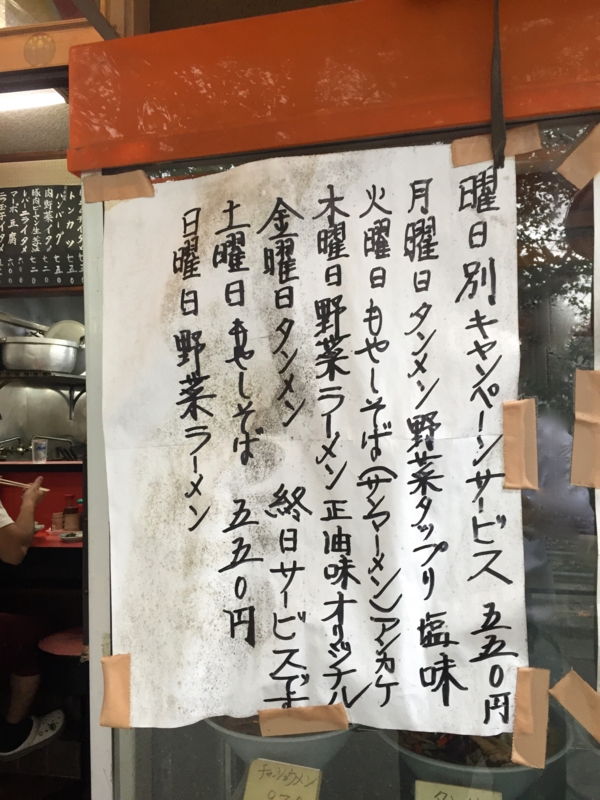 曜日別キャンペーンサービス 五五〇円
月曜日タンメン野菜タップリ 塩味
火曜日もやしそば(サンマーメン)アンカケ
木曜日野菜ラーメン正油味オリジナル
金曜日タンメン 終日サービスです
土曜日もやしそば 五五〇円
日曜日野菜ラーメン
チャーシューメン